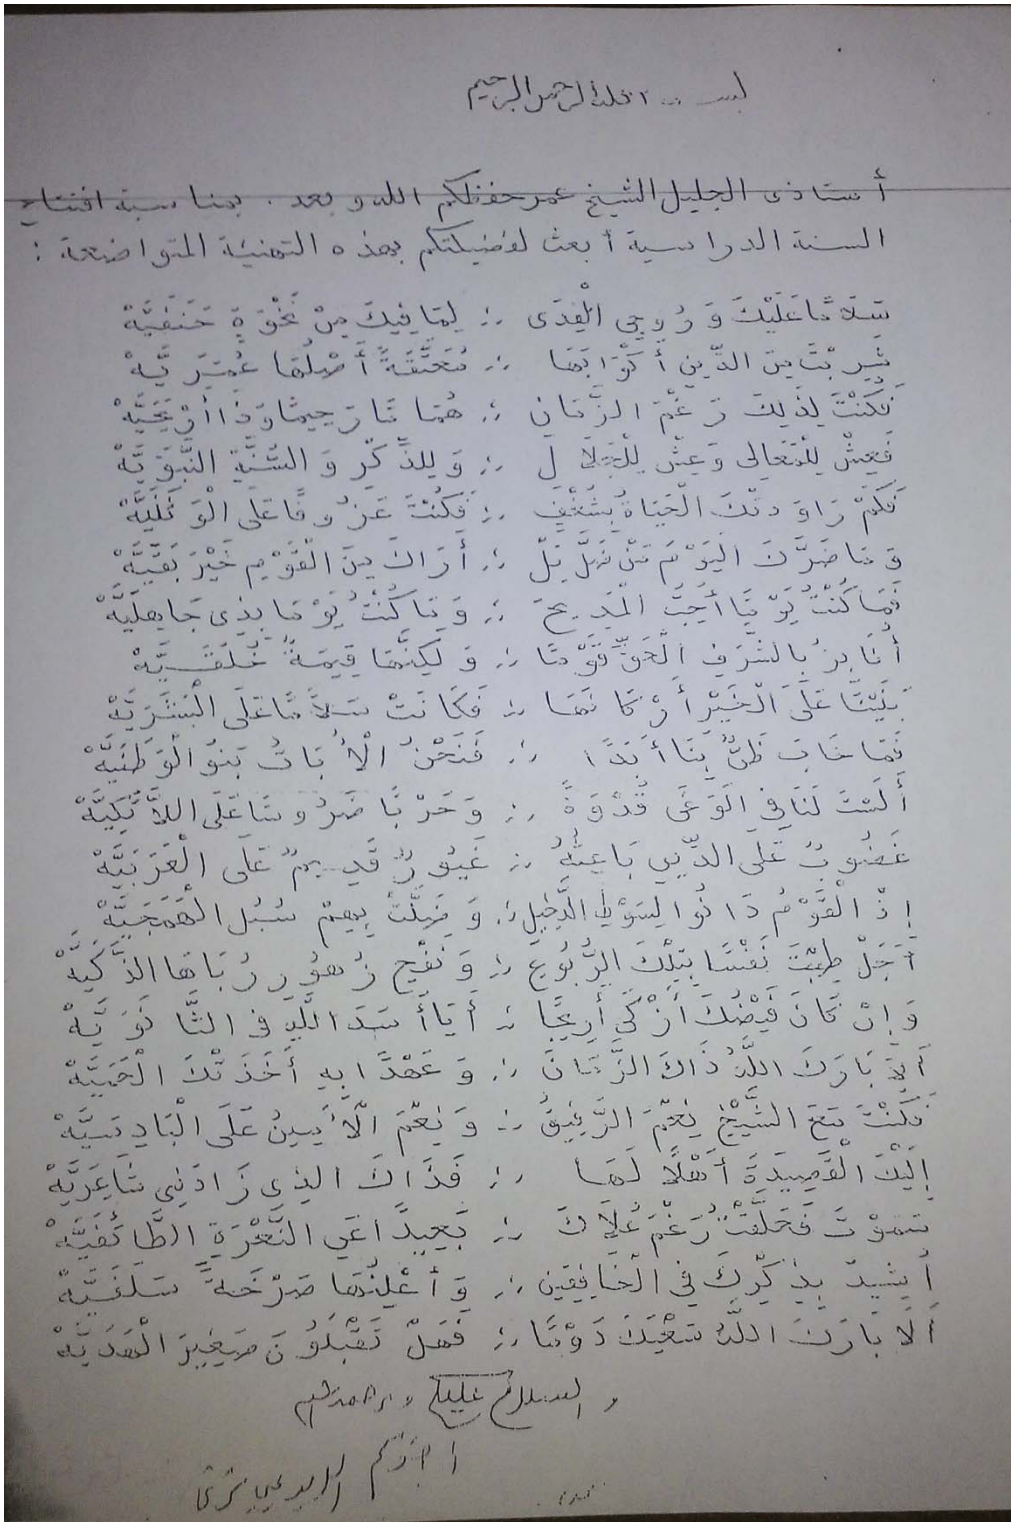 بسم الله الرحمن الرحيم
أستاذي الجليل الشيخ عمر حفظكم الله وبعد . بمناسبة افتتاح
السنة الدراسية أبعث لفضيلتكم بهذه التهنئة المتواضعة :
سَلَامًا عَلَيْكَ وَرُوحِي الْفِدَى ؛؛ لِمَا فِيكَ مِنْ نَخْوَةٍ حَنَفِيَّهْ
شَرِبْتَ مِنَ الدِّينِ أَكْوَابَهَا ؛؛ مُعَتَّقَةً أَصْلُهَا عُمَرِيَّهْ
فَكُنْتَ لِذَلِكَ رَغْمَ الزَّمَانِ ؛؛ هُمَامًا رَحِيمًا وَذَا أَرْيَحِيَّهْ
فَعِشْ لِلْمَعَالِي وَعِشْ لِلْجَلَالِ ؛؛ وَلِلذِّكْرِ وَالسُّنَّةِ النَّبَوِيَّهْ
فَكَمْ رَاوَدَتْكَ الْحَيَاةُ بِشَغْفٍ ؛؛ فَكُنْتَ عَزُوفًا عَلَى
وَمَا ضَرَّكَ الْيَوْمَ مَنْ ضَلَّ بَلْ ؛؛ أَرَاكَ مِنَ الْقَوْمِ خَيْرَ بَقِيَّهْ
فَمَا كُنْتُ يَوْمًا أُحِبُّ الْمَدِيحَ ؛؛ وَمَا كُنْتُ يَوْمًا بِذِي جَاهِلِيَّهْ
بِالشَّرَفِ الْحَقِّ قَوْمًا ؛؛ وَلَكِنَّهَا قِيمَةٌ خُلُقِيَّهْ
بَنَيْنَا عَلَى الْخَيْرِ أَرْكَانَهَا ؛؛ فَكَانَتْ سَلَامًا عَلَى الْبَشَرِيَّهْ
فَمَا خَابَ ظَنٌّ بِنَا أَبَدًا ؛؛ فَنَحْنُ الْأُبَاتُ بَنُو الْوَطَنِيَّهْ
أَلَسْتَ لَنَا فِي الْوَغَى قُدْوَةً ؛؛ وَحَرْبًا ضَرُوسًا عَلَى
غَضُوبٌ عَلَى الدِّينِ بَاعِثُهُ ؛؛ غَيُورٌ قَدِيمٌ عَلَى الْعَرَبِيَّهْ
إِذِ الْقَوْمُ دَانُوا لِسَوْطِ الدَّخِيلِ ؛؛ وَضَلَّتْ بِهِمْ سُبُلُ الْهَمَجِيَّهْ
أَجَلْ طِبْتَ نَفْسًا بِتِلْكَ الرُّبُوعِ ؛؛ وَنَفْحِ زُهُورِ رُبَاهَا الذَّكِيَّهْ
وَإِنْ كَانَ فَيْضُكَ أَزْكَى أَرِيجًا ؛؛ أَيَا أَسَدَ اللَّهِ فِي الثَّانَوِيَّهْ
أَلَا بَارَكَ اللَّهُ ذَاكَ الزَّمَانَ ؛؛ وَعَهْدًا بِهِ أَخَذَتْكَ الْحَمِيَّهْ
فَكُنْتَ مَعَ الشَّيْخِ نِعْمَ الرَّفِيقُ ؛؛ وَنِعْمَ الْأَمِينُ عَلَى الْبَادِسِيَّهْ
إِلَيْكَ الْقَصِيدَةَ أَهْلًا لَهَا ؛؛ فَذَاكَ الَّذِي زَادَنِي شَاعِرِيَّهْ
سَمَوْتَ فَحَلَّقْتُ رَغْمَ عُلَاكَ ؛؛ بَعِيدًا عَنِ النَّعْرَةِ الطَّائِفِيَّهْ
أُشِيدُ بِذِكْرِكَ فِي الْخَافِقَيْنِ ؛؛ وَأُعْلِنُهَا صَرْخَةً سَلَفِيَّهْ
أَلَا بَارَكَ اللَّهُ سَعْيَكَ دَوْمًا ؛؛ فَهَلْ تَقْبَلُونَ صَغِيرَ الْهَدِيَّهْ
والسلام عليكم ورحمة الله
ابنكم